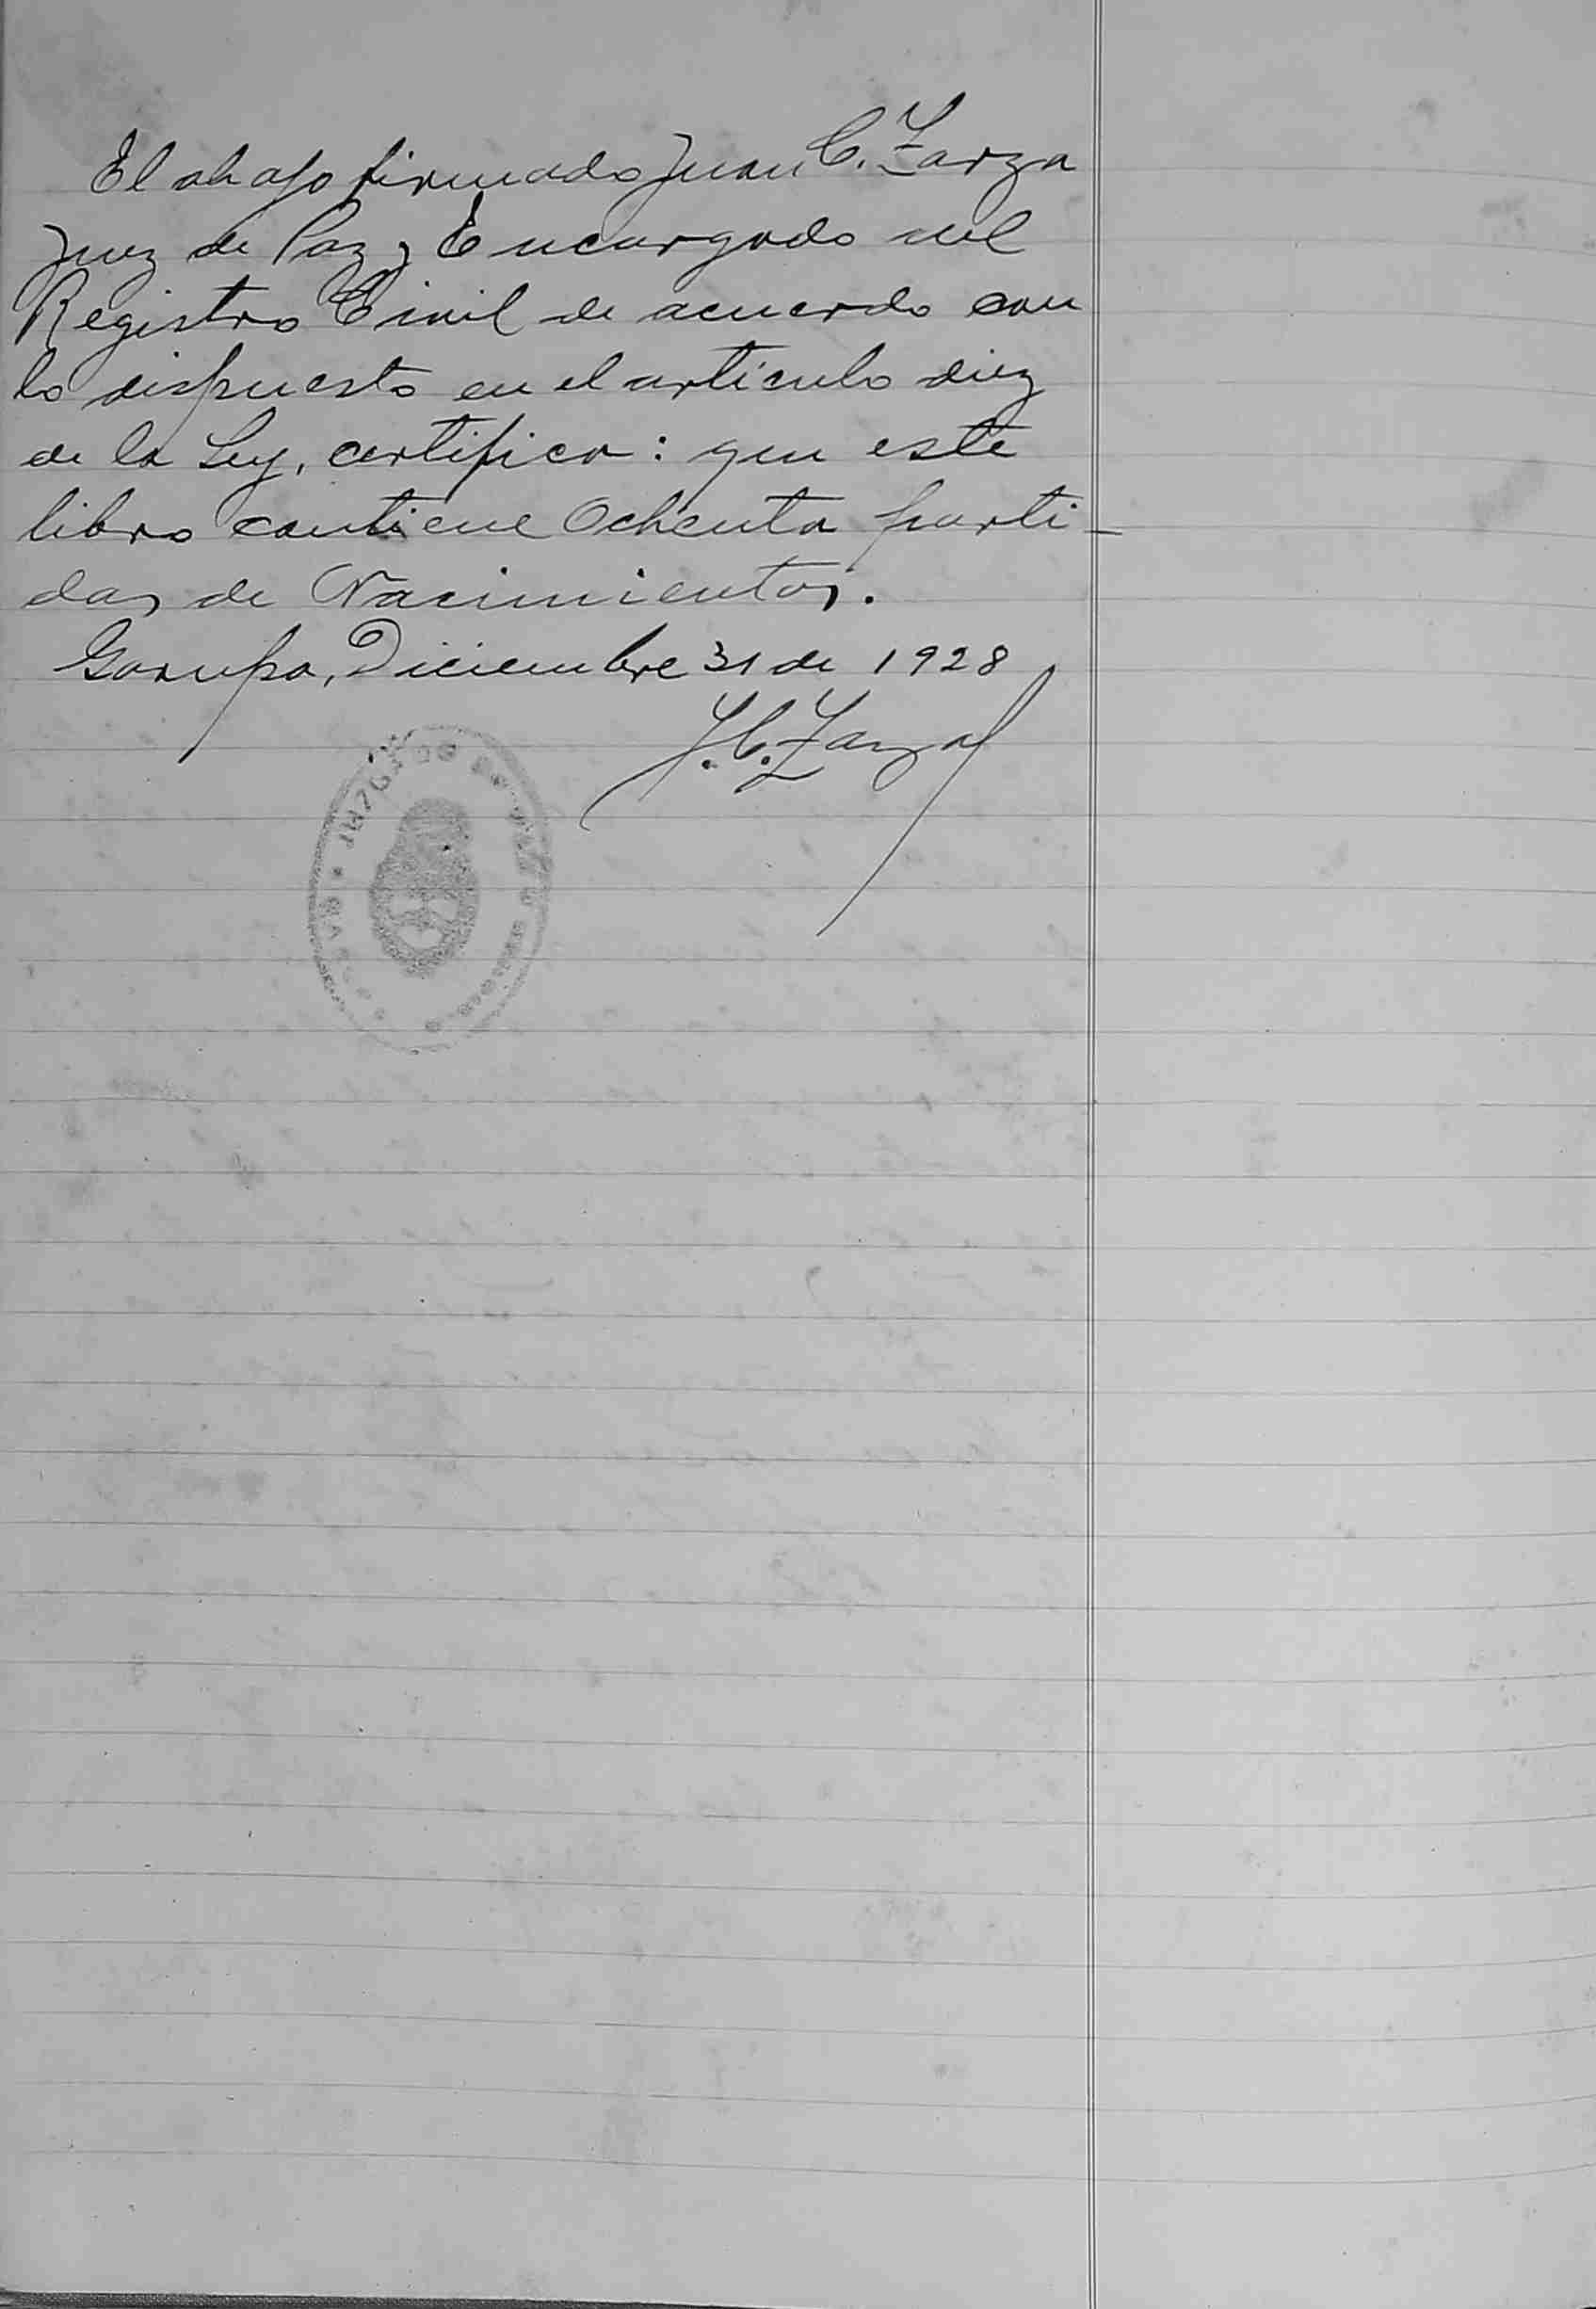 El abajo firmado Juan C. Zarza
Juez de Paz y Encargado del
Registro Civil de acuerdo con
lo dispuesto en el articulo diez
de la Ley, certifico: que este
libro contiene Ochenta parti-
das de Nacimientos.
Garupa, Diciembre 31 de 1928
J. C. Zarza
JUZGADO DE PAZ